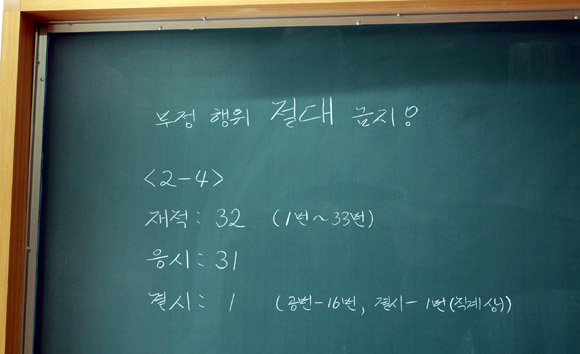 부정 행위 절대 금지!
<2-4>
재적: 32 (1번~33번)
응시: 31
결시: 1 (공번-16번, 결시-1번(직계상))